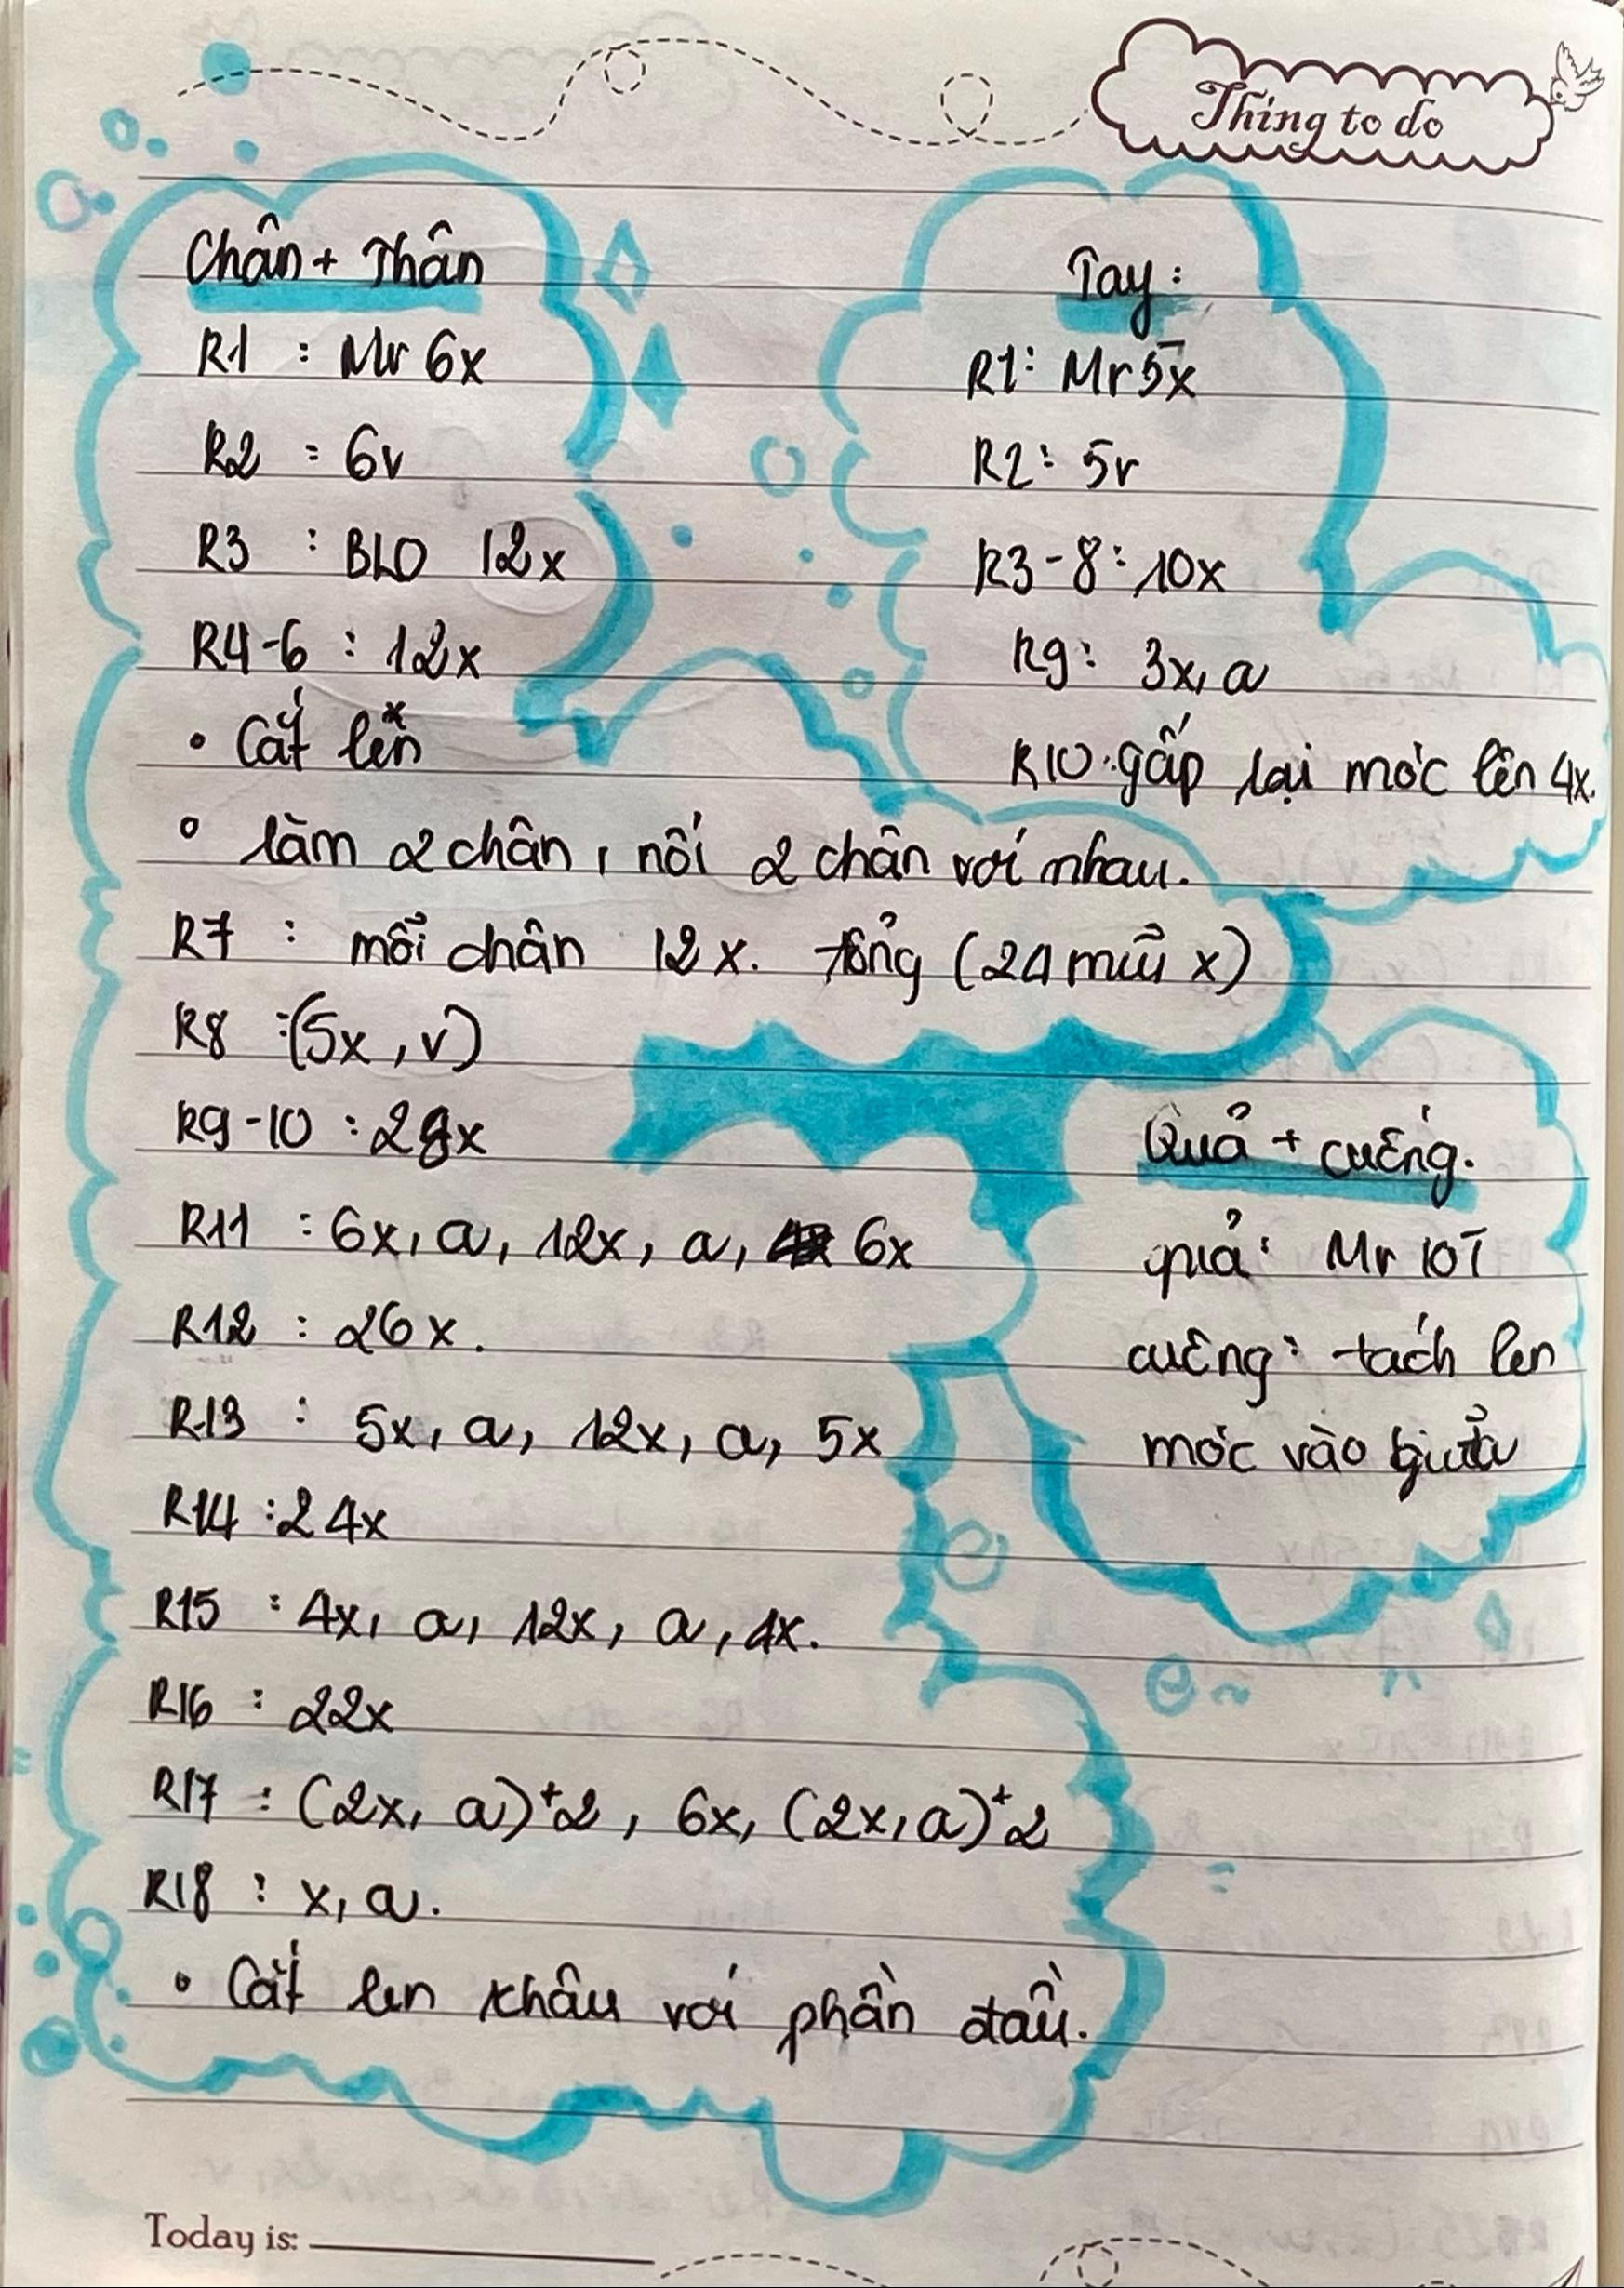 Thing to do
Chân + Thân
R1 : Mr 6x
R2 : 6v
R3 : BLO 12x
R4-6 : 12x
• Cắt len
• làm 2 chân, nối 2 chân với nhau.
R7 : mỗi chân 12x. tổng (24 mũi x)
R8 :(5x, v)
R9-10 : 28x
R11 : 6x, a, 12x, a, 6x
R12 : 26x.
R13 : 5x, a, 12x, a, 5x
R14 : 24x
R15 : 4x, a, 12x, a, 4x.
R16 : 22x
R17 : (2x, a)*2, 6x, (2x, a)*2
R18 : x, a.
• Cắt len khâu với phần đầu.
Tay :
R1: Mr 5x
R2: 5v
R3-8: 10x
R9: 3x, a
R10: gấp lại móc lên 4x.
Quả + cuống.
quả: Mr 10T
cuống: tách len
móc vào giữa
Today is: